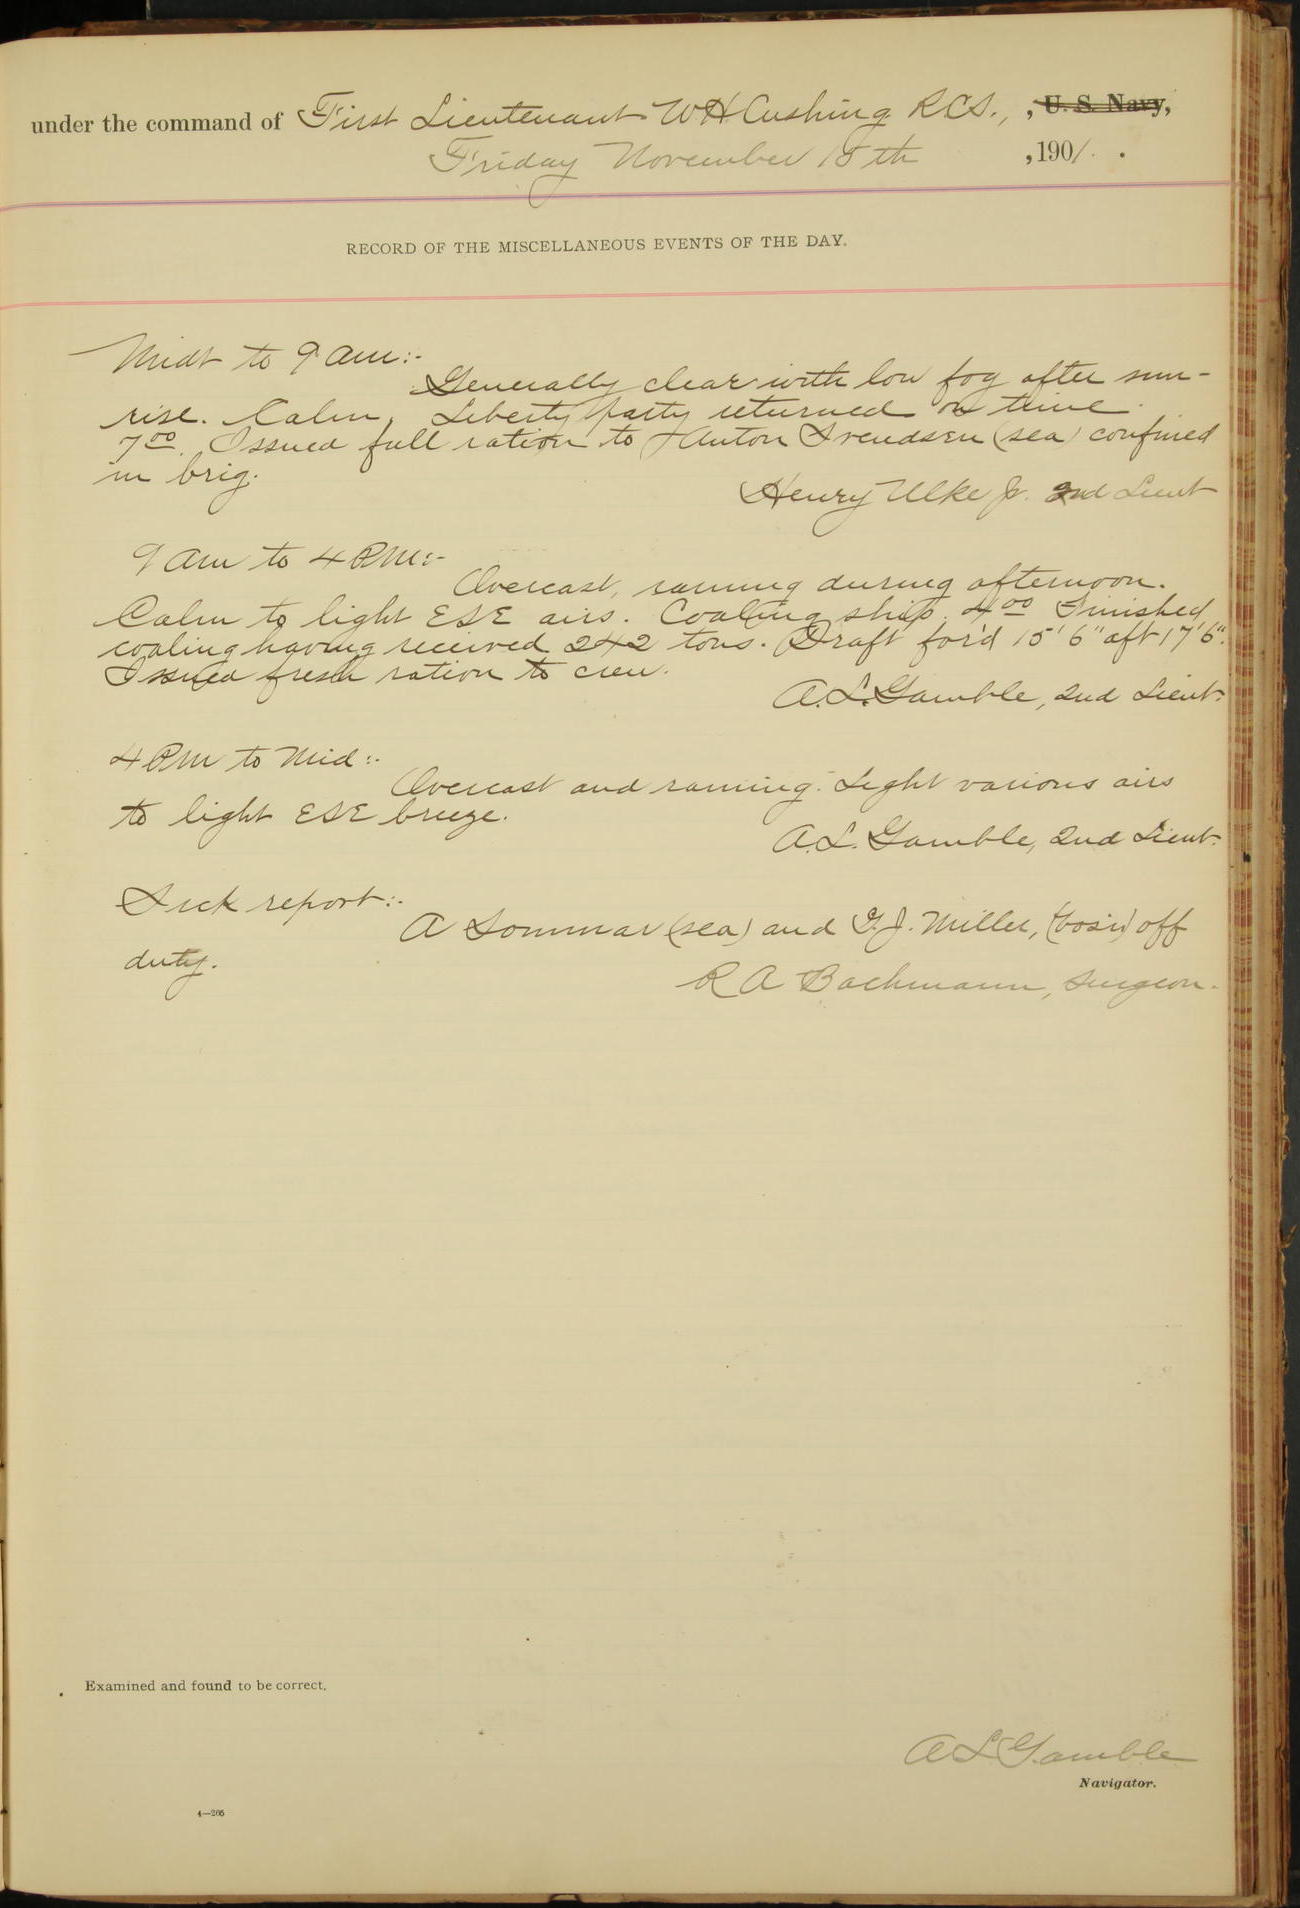 under the command of First Lieutenant W H Cushing R.C.S., , U. S. Navy,
Friday November 15th ,1901.
RECORD OF THE MISCELLANEOUS EVENTS OF THE DAY.
Midt to 9 am:-
Generally clear with low fog after sun-
rise. Calm. Liberty party returned on time.
7 00. Issued full ration to Anton Svendsen (sea) confined
in brig.
Henry Ulke Jr. 2nd Lieut
9 am to 4 PM:-
Overcast, raining during afternoon.
Calm to light ESE airs. Coaling ship. 4 00 Finished
coaling having received 242 tons. Draft for'd 15' 6" aft 17' 6".
Issued fresh ration to crew.
A.L. Gamble, 2nd Lieut.
4 PM to Mid:-
Overcast and raining. Light various airs
to light ESE breeze.
A.L. Gamble, 2nd Lieut.
Sick report:-
A Sommar (sea) and G.J. Miller, (bosn) off
duty.
R A Bachmann, Surgeon.
Examined and found to be correct.
A L Gamble
Navigator.
4—205